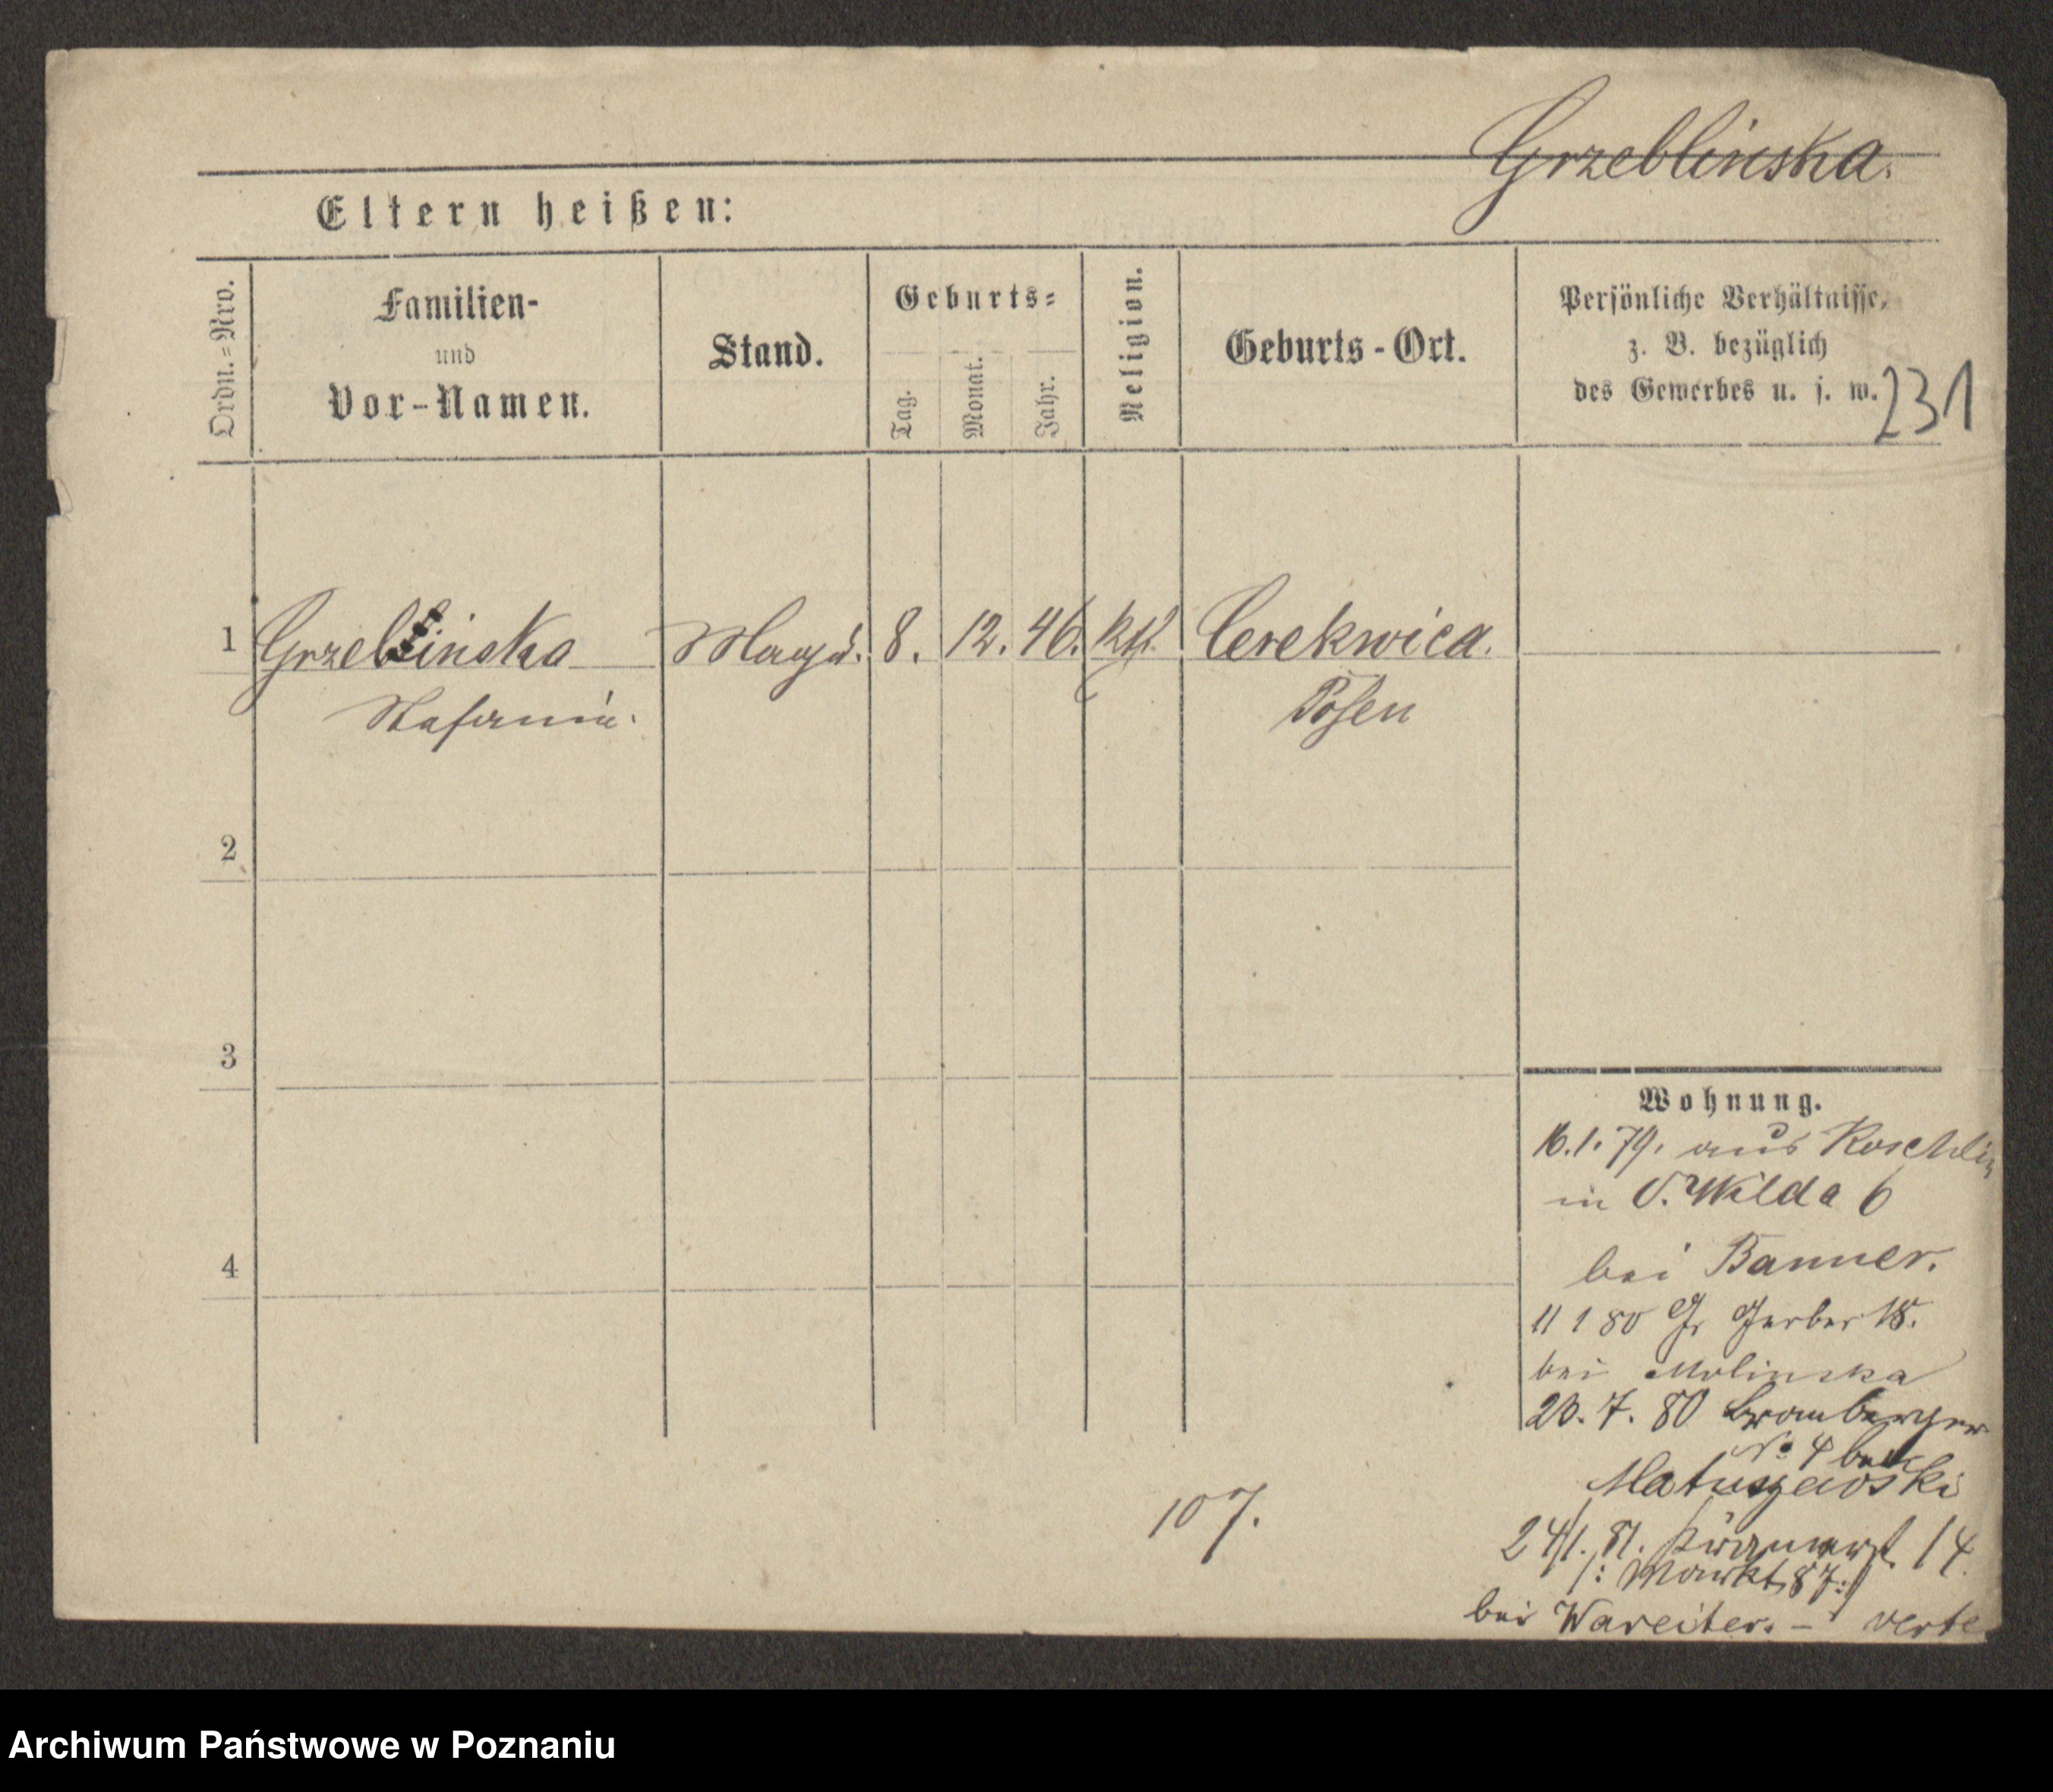 Grzeblinska.
Eltern heißen:
Ordn.=Nro.
Familien-
und
Vor-Namen.
Stand.
Geburts=
Tag.
Monat.
Jahr.
Religion.
Geburts-Ort.
Persönliche Verhältnisse,
z. B. bezüglich
des Gewerbes u. s. w.
231
1 Grzeblinska Magd. 8. 12. 46. kth. Cerekwica.
Stefania. Posen
2
3
4
Wohnung.
16.1.79. aus Koschlin
in O. Wilda 6
bei Banner.
11 1 80 Gr Gerber 18.
bei Molinska
23. 7. 80 Bromberger
No 4 bei
Matuszewski
24/1. 81. 14.
/: Markt 87:/
bei Wareiter. – verte
107.
Archiwum Państwowe w Poznaniu